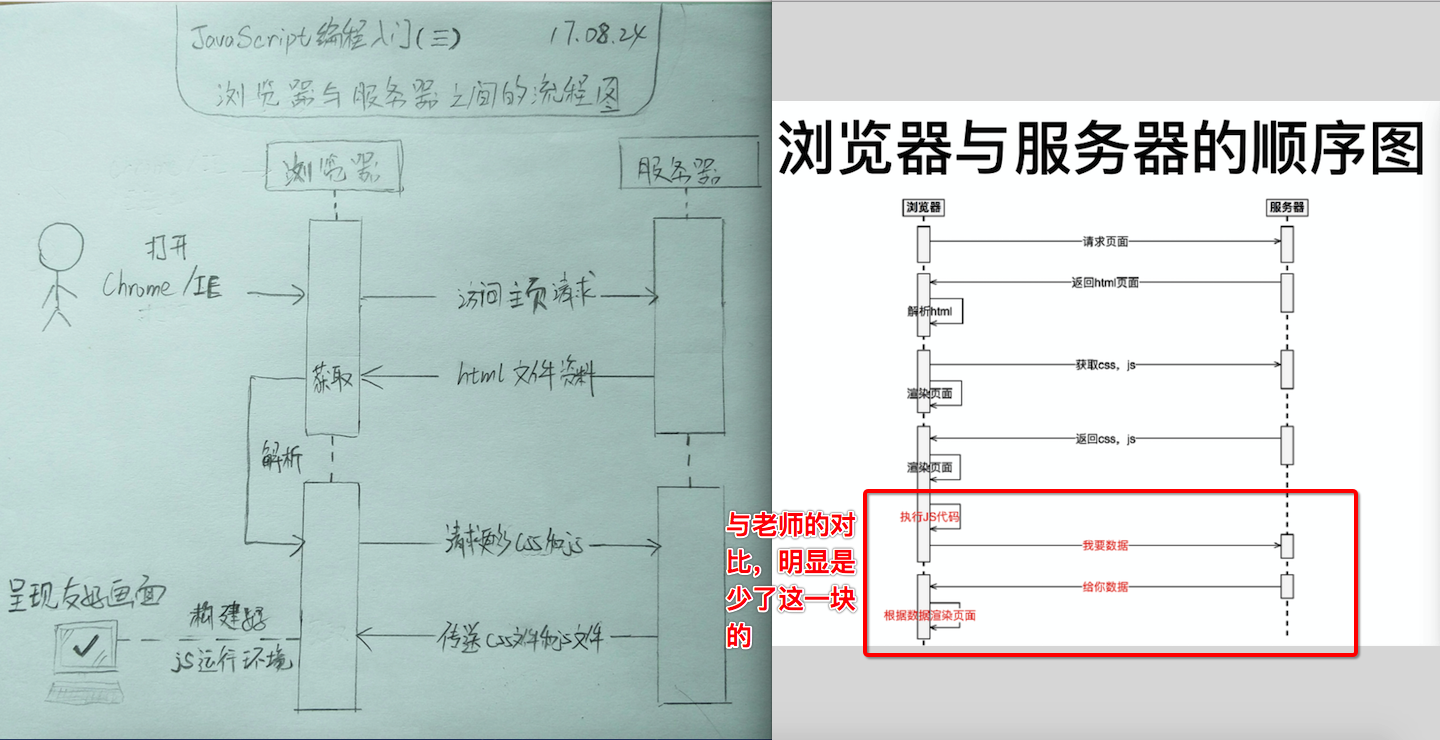 JavaScript编程入门(三)
17.08.24
浏览器与服务器之间的流程图
浏览器
服务器
打开
Chrome/IE
访问主页请求
获取
html文件资料
解析
请求更多css和js
呈现友好画面
构建好
js运行环境
传送css文件和js文件
浏览器与服务器的顺序图
浏览器
服务器
请求页面
返回html页面
解析html
获取css，js
渲染页面
返回css，js
渲染页面
执行JS代码
我要数据
给你数据
根据数据渲染页面
与老师的对
比，明显是
少了这一块
的